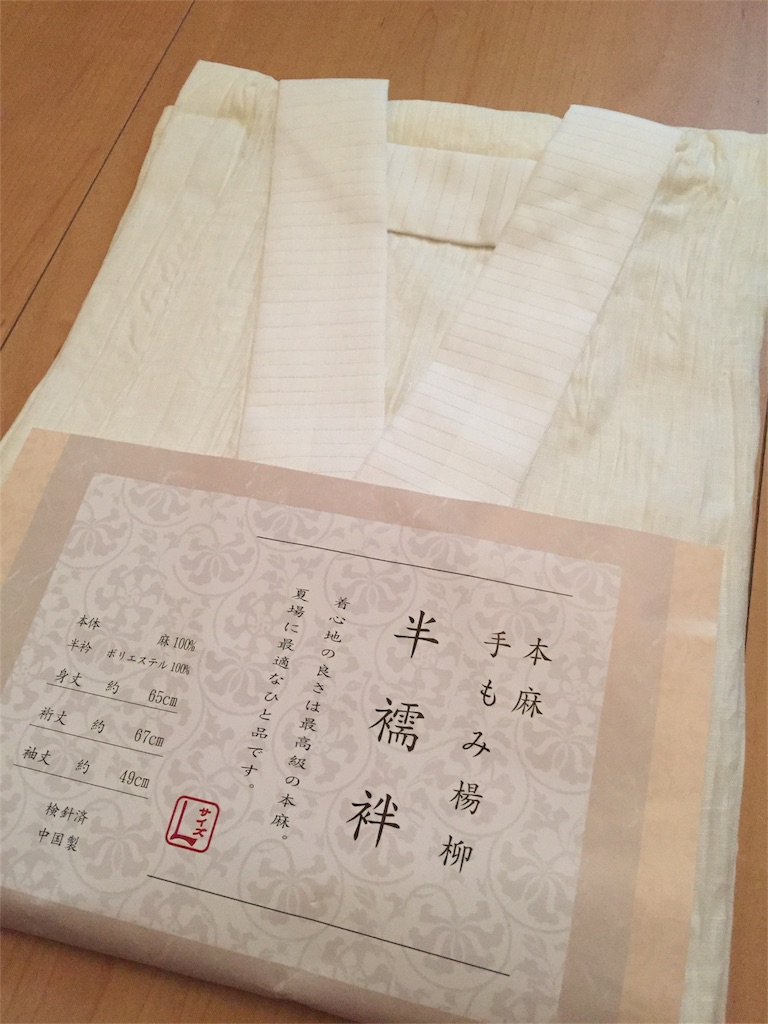 本麻
手もみ楊柳
半襦袢
着心地の良さは最高級の本麻。
夏場に最適なひと品です。
本体 麻100%
半衿 ポリエステル100%
身丈 約 65cm
裄丈 約 67cm
袖丈 約 49cm
検針済
中国製
サイズ
L